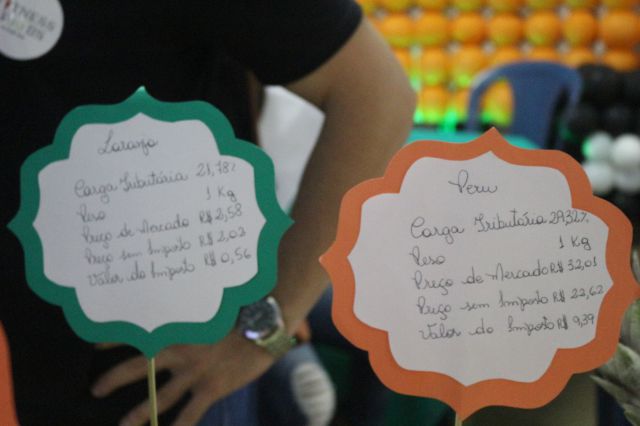 FITNESS
Laranja
Carga Tributária 21,78%
Peso 1 Kg
Preço de Mercado R$ 2,58
Preço sem Imposto R$ 2,02
Valor do Imposto R$ 0,56
Peru
Carga Tributária 29,32%
Peso 1 Kg
Preço de Mercado R$ 32,01
Preço sem Imposto R$ 22,62
Valor do Imposto R$ 9,39